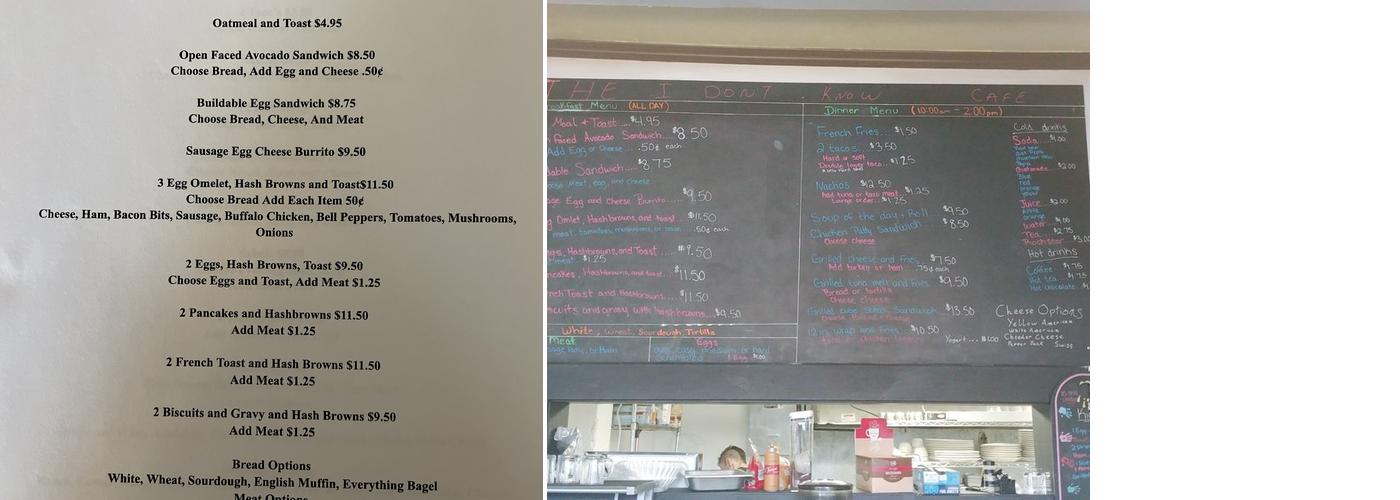 Oatmeal and Toast $4.95
Open Faced Avocado Sandwich $8.50
Choose Bread, Add Egg and Cheese .50¢
Buildable Egg Sandwich $8.75
Choose Bread, Cheese, And Meat
Sausage Egg Cheese Burrito $9.50
3 Egg Omelet, Hash Browns and Toast$11.50
Choose Bread Add Each Item 50¢
Cheese, Ham, Bacon Bits, Sausage, Buffalo Chicken, Bell Peppers, Tomatoes, Mushrooms,
Onions
2 Eggs, Hash Browns, Toast $9.50
Choose Eggs and Toast, Add Meat $1.25
2 Pancakes and Hashbrowns $11.50
Add Meat $1.25
2 French Toast and Hash Browns $11.50
Add Meat $1.25
2 Biscuits and Gravy and Hash Browns $9.50
Add Meat $1.25
Bread Options
White, Wheat, Sourdough, English Muffin, Everything Bagel
Meat Options
THE I DON'T KNOW CAFE
Menu (ALL DAY)
Meal & Toast $4.95
Faced Avocado Sandwich $8.50
Add Egg or Cheese .50¢ each
Sandwich $8.75
Meat, egg, and cheese
Egg and Cheese Burrito $9.50
Omlet, Hashbrowns, and toast $11.50
meat, tomatoes, mushrooms, or onion .50¢ each
Hashbrowns, and Toast $9.50
$1.25
Hashbrowns, and toast $11.50
Toast and Hashbrowns $11.50
and gravy with hashbrowns $9.50
White, Wheat, Sourdough, Tortilla
Meat
Patty, or Ham
Eggs
over easy, medium, or hard
Scrambled 1 Egg $1.00
Dinner Menu (10:00am - 2:00pm)
French Fries $1.50
2 tacos $3.50
Hard or Soft
Double layer taco $1.25
Nachos $12.50
Add tuna or taco meat $1.25
Large order $1.25
Soup of the day + Roll $9.50
Chicken Patty Sandwich $8.50
Choose cheese
Grilled cheese and Fries $7.50
Add bacon or ham .75¢ each
Grilled tuna melt and Fries $9.50
Bread or tortilla
Choose cheese
Grilled Sandwich $13.50
12 in wrap and Fries $10.50
Yogurt $1.00
Cold drinks
Soda $1.00
Gatorade $2.00
Blue
red
orange
yellow
Juice $2.00
Apple
orange
Water $1.00
Tea $2.75
Hot drinks
Coffee $1.75
Hot tea $1.75
Hot chocolate
Cheese Options
Yellow American
White American
Cheddar Cheese
Pepper Jack Swiss